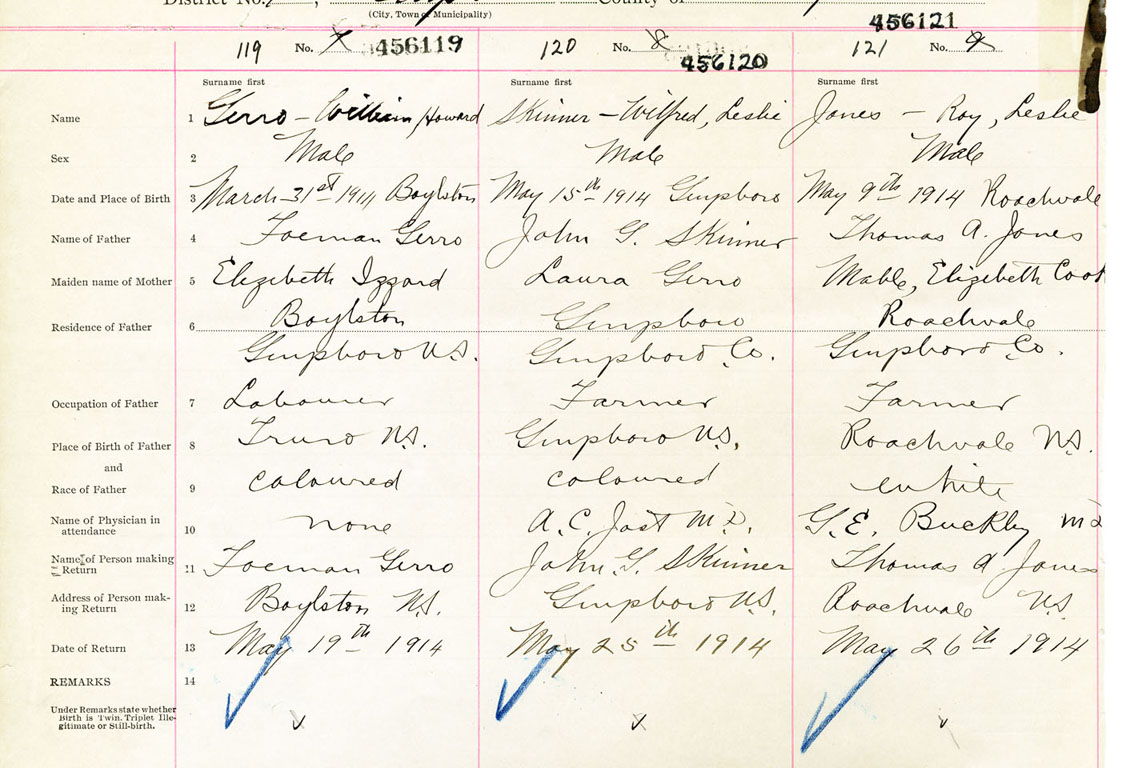 District No.
County of
(City, Town or Municipality)
456121
119 No. 7 456119 120 No. 8 456120 121 No. 9
Surname first Surname first Surname first
Name 1 Gerro - William Howard Skinner - Wilfred, Leslie Jones - Roy, Leslie
Sex 2 Male Male Male
Date and Place of Birth 3 March 31st 1914 Boylston May 15th 1914 Guysboro May 9th 1914 Roachvale
Name of Father 4 Foeman Gerro John G. Skinner Thomas A. Jones
Maiden name of Mother 5 Elizebeth Izzard Laura Gerro Mable, Elizebeth Cook
Residence of Father 6 Boylston Guysboro Roachvale
Guysboro N.S. Guysboro Co. Guysboro Co.
Occupation of Father 7 Labourer Farmer Farmer
Place of Birth of Father 8 Truro N.S. Guysboro N.S. Roachvale N.S.
and
Race of Father 9 Coloured Coloured White
Name of Physician in
attendance 10 none A. C. Jost M.D. G. E. Buckley M D
Name of Person making
Return 11 Foeman Gerro John. G. Skinner Thomas A Jones
Address of Person mak-
ing Return 12 Boylston N.S. Guysboro N.S. Roachvale N.S
Date of Return 13 May 19th 1914 May 25th 1914 May 26th 1914
REMARKS 14
Under Remarks state whether
Birth is Twin, Triplet Ille-
gitimate or Still-birth.